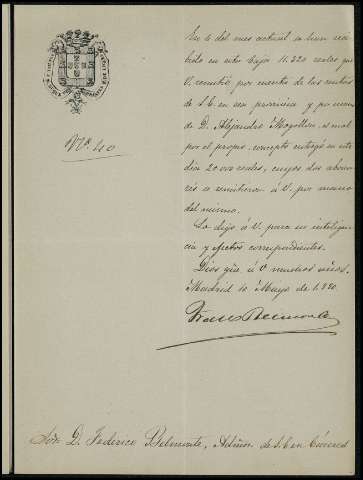 Nº. 40
En 6 del mes actual se han reci-
bido en esta Caja 11.220 reales que
V. remitió por cuenta de las rentas
de S.E. en esa provincia y por mano
de D. Alejandro Mogollon, el cual
por el propio concepto entregó en este
dia 20.000 reales, cuyos dos abona-
rés se remitieron á V. por mano
del mismo.
Lo digo á V. para su inteligen-
cia y efectos correspondientes.
Dios gue. á V. muchos años.
Madrid 10 Mayo de 1.880.
Sor. D. Federico Belmonte, Admor. de S.E. en Cáceres